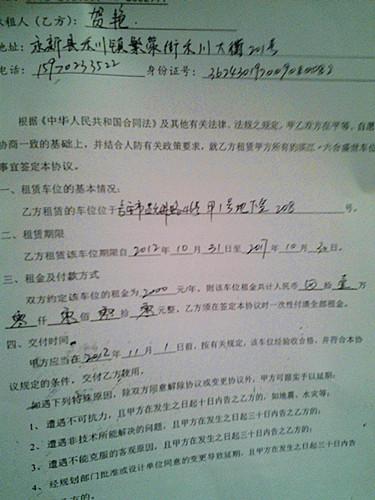 承租人（乙方）：贺艳
地址：永新县禾川镇繁荣街禾川大街201号
电话：15970233522 身份证号：
根据《中华人民共和国合同法》及其有关法律、法规之规定，甲乙双方在平等、自愿
协商一致的基础上，并结合人防有关政策要求，就乙方租赁甲方所有的
事宜签定本协议。
一、租赁车位的基本情况：
乙方租赁的车位位于吉安市 甲1号地下室208 号。
二、租赁期限
乙方租赁该车位期限自2012年10月31日至2017年10月30日。
三、租金及付款方式
双方约定该车位的租金为2000元/年，则该车位租金共计人民币 拾壹万
零仟零佰零拾零元整，乙方须在签定本协议时一次性付清全部租金。
四、交付时间
甲方应当在2012年11月1日前，按有关规定，该车位经验收合格，并符合本协
议规定的条件，交付乙方使用，
如遇下列特殊原因，除双方同意解除协议或变更协议外，甲方可据实予以延期：
1、遭遇不可抗力，且甲方在发生之日起十日内告之乙方的，如地震，水灾等；
2、遭遇非技术所能解决的问题，且甲方在发生之日起三十日内告之乙方的；
3、遭遇不能克服的客观原因，且甲方在发生之日起三十日内告之乙方的；
4、经规划部门批准或设计单位同意的变更导致延期，且甲方在发生之日起三十日内告